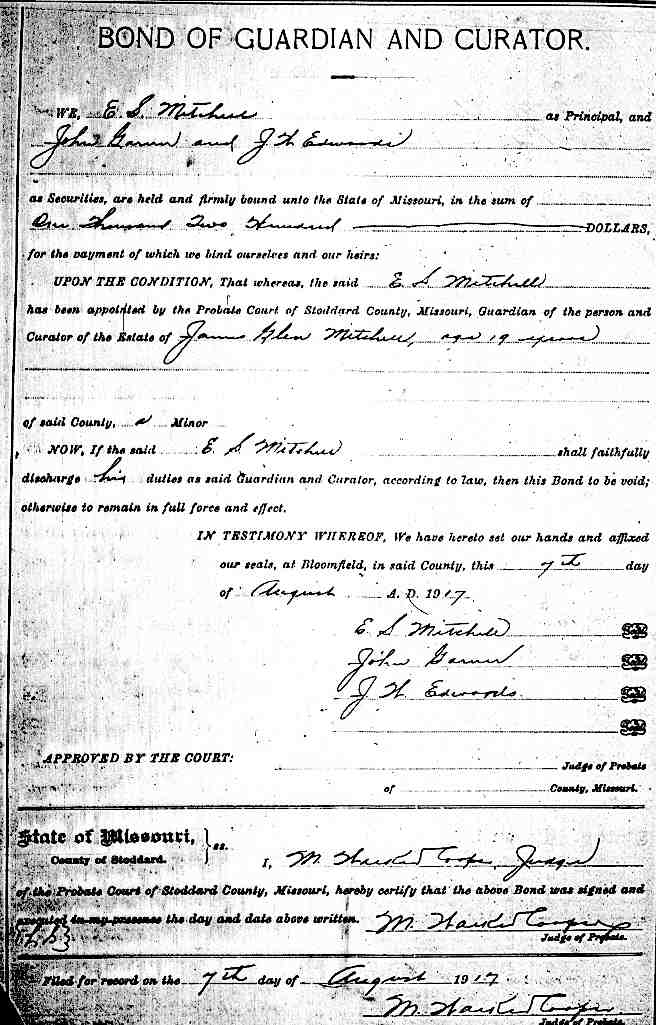 BOND OF GUARDIAN AND CURATOR.
WE, E. S. Mitchell as Principal, and
John Garner and J W Edwards
as Securities, are held and firmly bound unto the State of Missouri, in the sum of
One Thousand Two Hundred DOLLARS,
for the payment of which we bind ourselves and our heirs:
UPON THE CONDITION, That whereas, the said E S Mitchell
has been appointed by the Probate Court of Stoddard County, Missouri, Guardian of the person and
Curator of the Estate of James Glen Mitchell, age 19 years
of said County, a Minor
NOW, If the said E S Mitchell shall faithfully
discharge his duties as said Guardian and Curator, according to law, then this Bond to be void;
otherwise to remain in full force and effect.
IN TESTIMONY WHEREOF, We have hereto set our hands and affixed
our seals, at Bloomfield, in said County, this 7th day
of August A. D. 1917
E S Mitchell
John Garner
J W Edwards
APPROVED BY THE COURT:
Judge of Probate
of County, Missouri.
State of Missouri,
County of Stoddard. } ss.
I, M. Cooper, Judge
of the Probate Court of Stoddard County, Missouri, hereby certify that the above Bond was signed and
executed in my presence the day and date above written. M. Cooper
Judge of Probate.
Filed for record on the 7th day of August 1917
M. Cooper
Judge of Probate